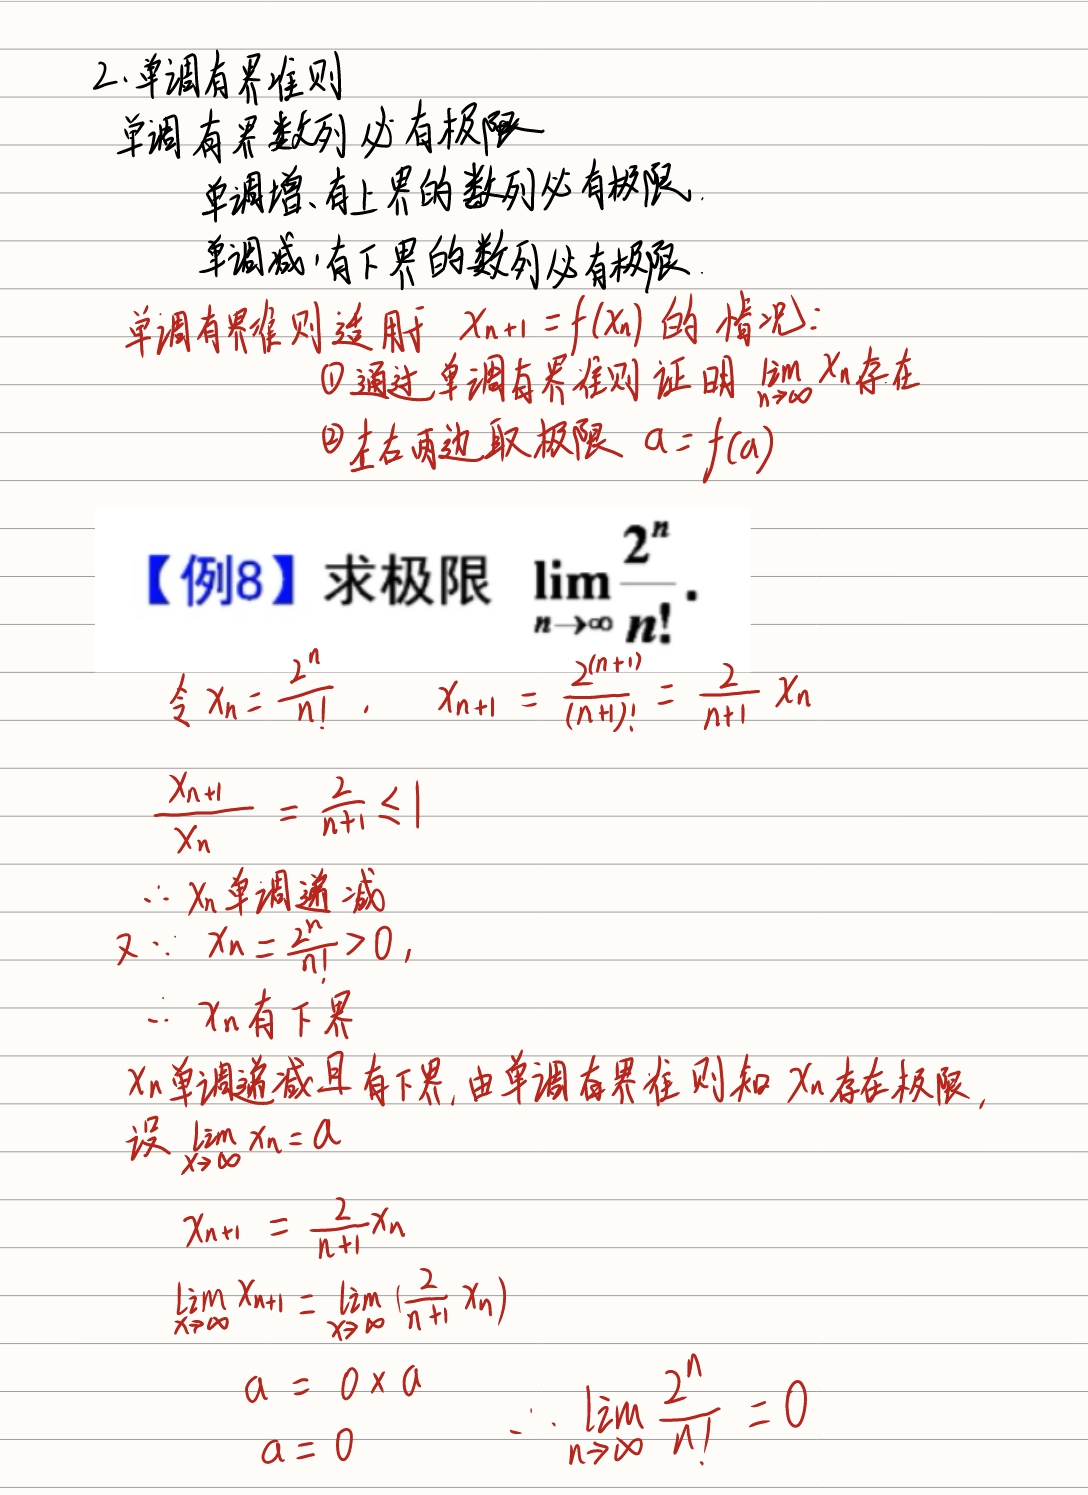 2.单调有界准则
单调有界数列必有极限
单调增、有上界的数列必有极限.
单调减,有下界的数列必有极限.
单调有界准则适用于 xₙ₊₁ = f(xₙ) 的情况:
①通过单调有界准则证明 lim n→∞ xₙ存在
②左右两边取极限 a = f(a)
【例8】求极限 lim n→∞ 2ⁿ/n! .
令 xₙ = 2ⁿ/n! , xₙ₊₁ = 2⁽ⁿ⁺¹⁾/(n+1)! = 2/(n+1) xₙ
xₙ₊₁/xₙ = 2/(n+1) ≤ 1
∴ xₙ单调递减
又∵ xₙ = 2ⁿ/n! > 0,
∴ xₙ有下界
xₙ单调递减且有下界,由单调有界准则知 xₙ存在极限,
设 lim x→∞ xₙ = a
xₙ₊₁ = 2/(n+1) xₙ
lim x→∞ xₙ₊₁ = lim x→∞ (2/(n+1) xₙ)
a = 0 × a
a = 0 ∴ lim n→∞ 2ⁿ/n! = 0